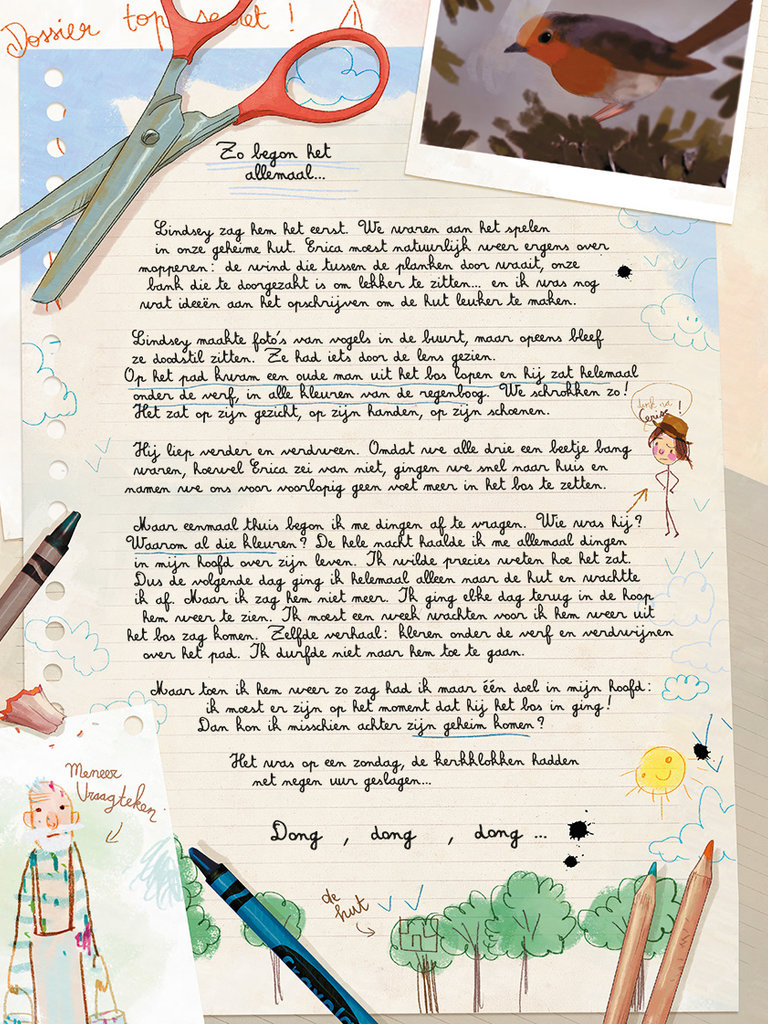 Dossier top secret !
Zo begon het
allemaal...
Lindsey zag hem het eerst. We waren aan het spelen
in onze geheime hut. Erica moest natuurlijk weer ergens over
mopperen: de wind die tussen de planken door waait, onze
bank die te doorgezakt is om lekker te zitten... en ik was nog
wat ideeën aan het opschrijven om de hut leuker te maken.
Lindsey maakte foto's van vogels in de buurt, maar opeens bleef
ze doodstil zitten. Ze had iets door de lens gezien.
Op het pad kwam een oude man uit het bos lopen en hij zat helemaal
onder de verf, in alle kleuren van de regenboog. We schrokken zo!
Het zat op zijn gezicht, op zijn handen, op zijn schoenen.
Hij liep verder en verdween. Omdat we alle drie een beetje bang
waren, hoewel Erica zei van niet, gingen we snel naar huis en
namen we ons voor voorlopig geen voet meer in het bos te zetten.
Maar eenmaal thuis begon ik me dingen af te vragen. Wie was hij?
Waarom al die kleuren? De hele nacht haalde ik me allemaal dingen
in mijn hoofd over zijn leven. Ik wilde precies weten hoe het zat.
Dus de volgende dag ging ik helemaal alleen naar de hut en wachtte
ik af. Maar ik zag hem niet meer. Ik ging elke dag terug in de hoop
hem weer te zien. Ik moest een week wachten voor ik hem weer uit
het bos zag komen. Zelfde verhaal: kleren onder de verf en verdwijnen
over het pad. Ik durfde niet naar hem toe te gaan.
Maar toen ik hem weer zo zag had ik maar één doel in mijn hoofd:
ik moest er zijn op het moment dat hij het bos in ging!
Dan kon ik misschien achter zijn geheim komen?
Het was op een zondag, de kerkklokken hadden
net negen uur geslagen...
Dong , dong , dong ...
Meneer
Vraagteken
de
hut